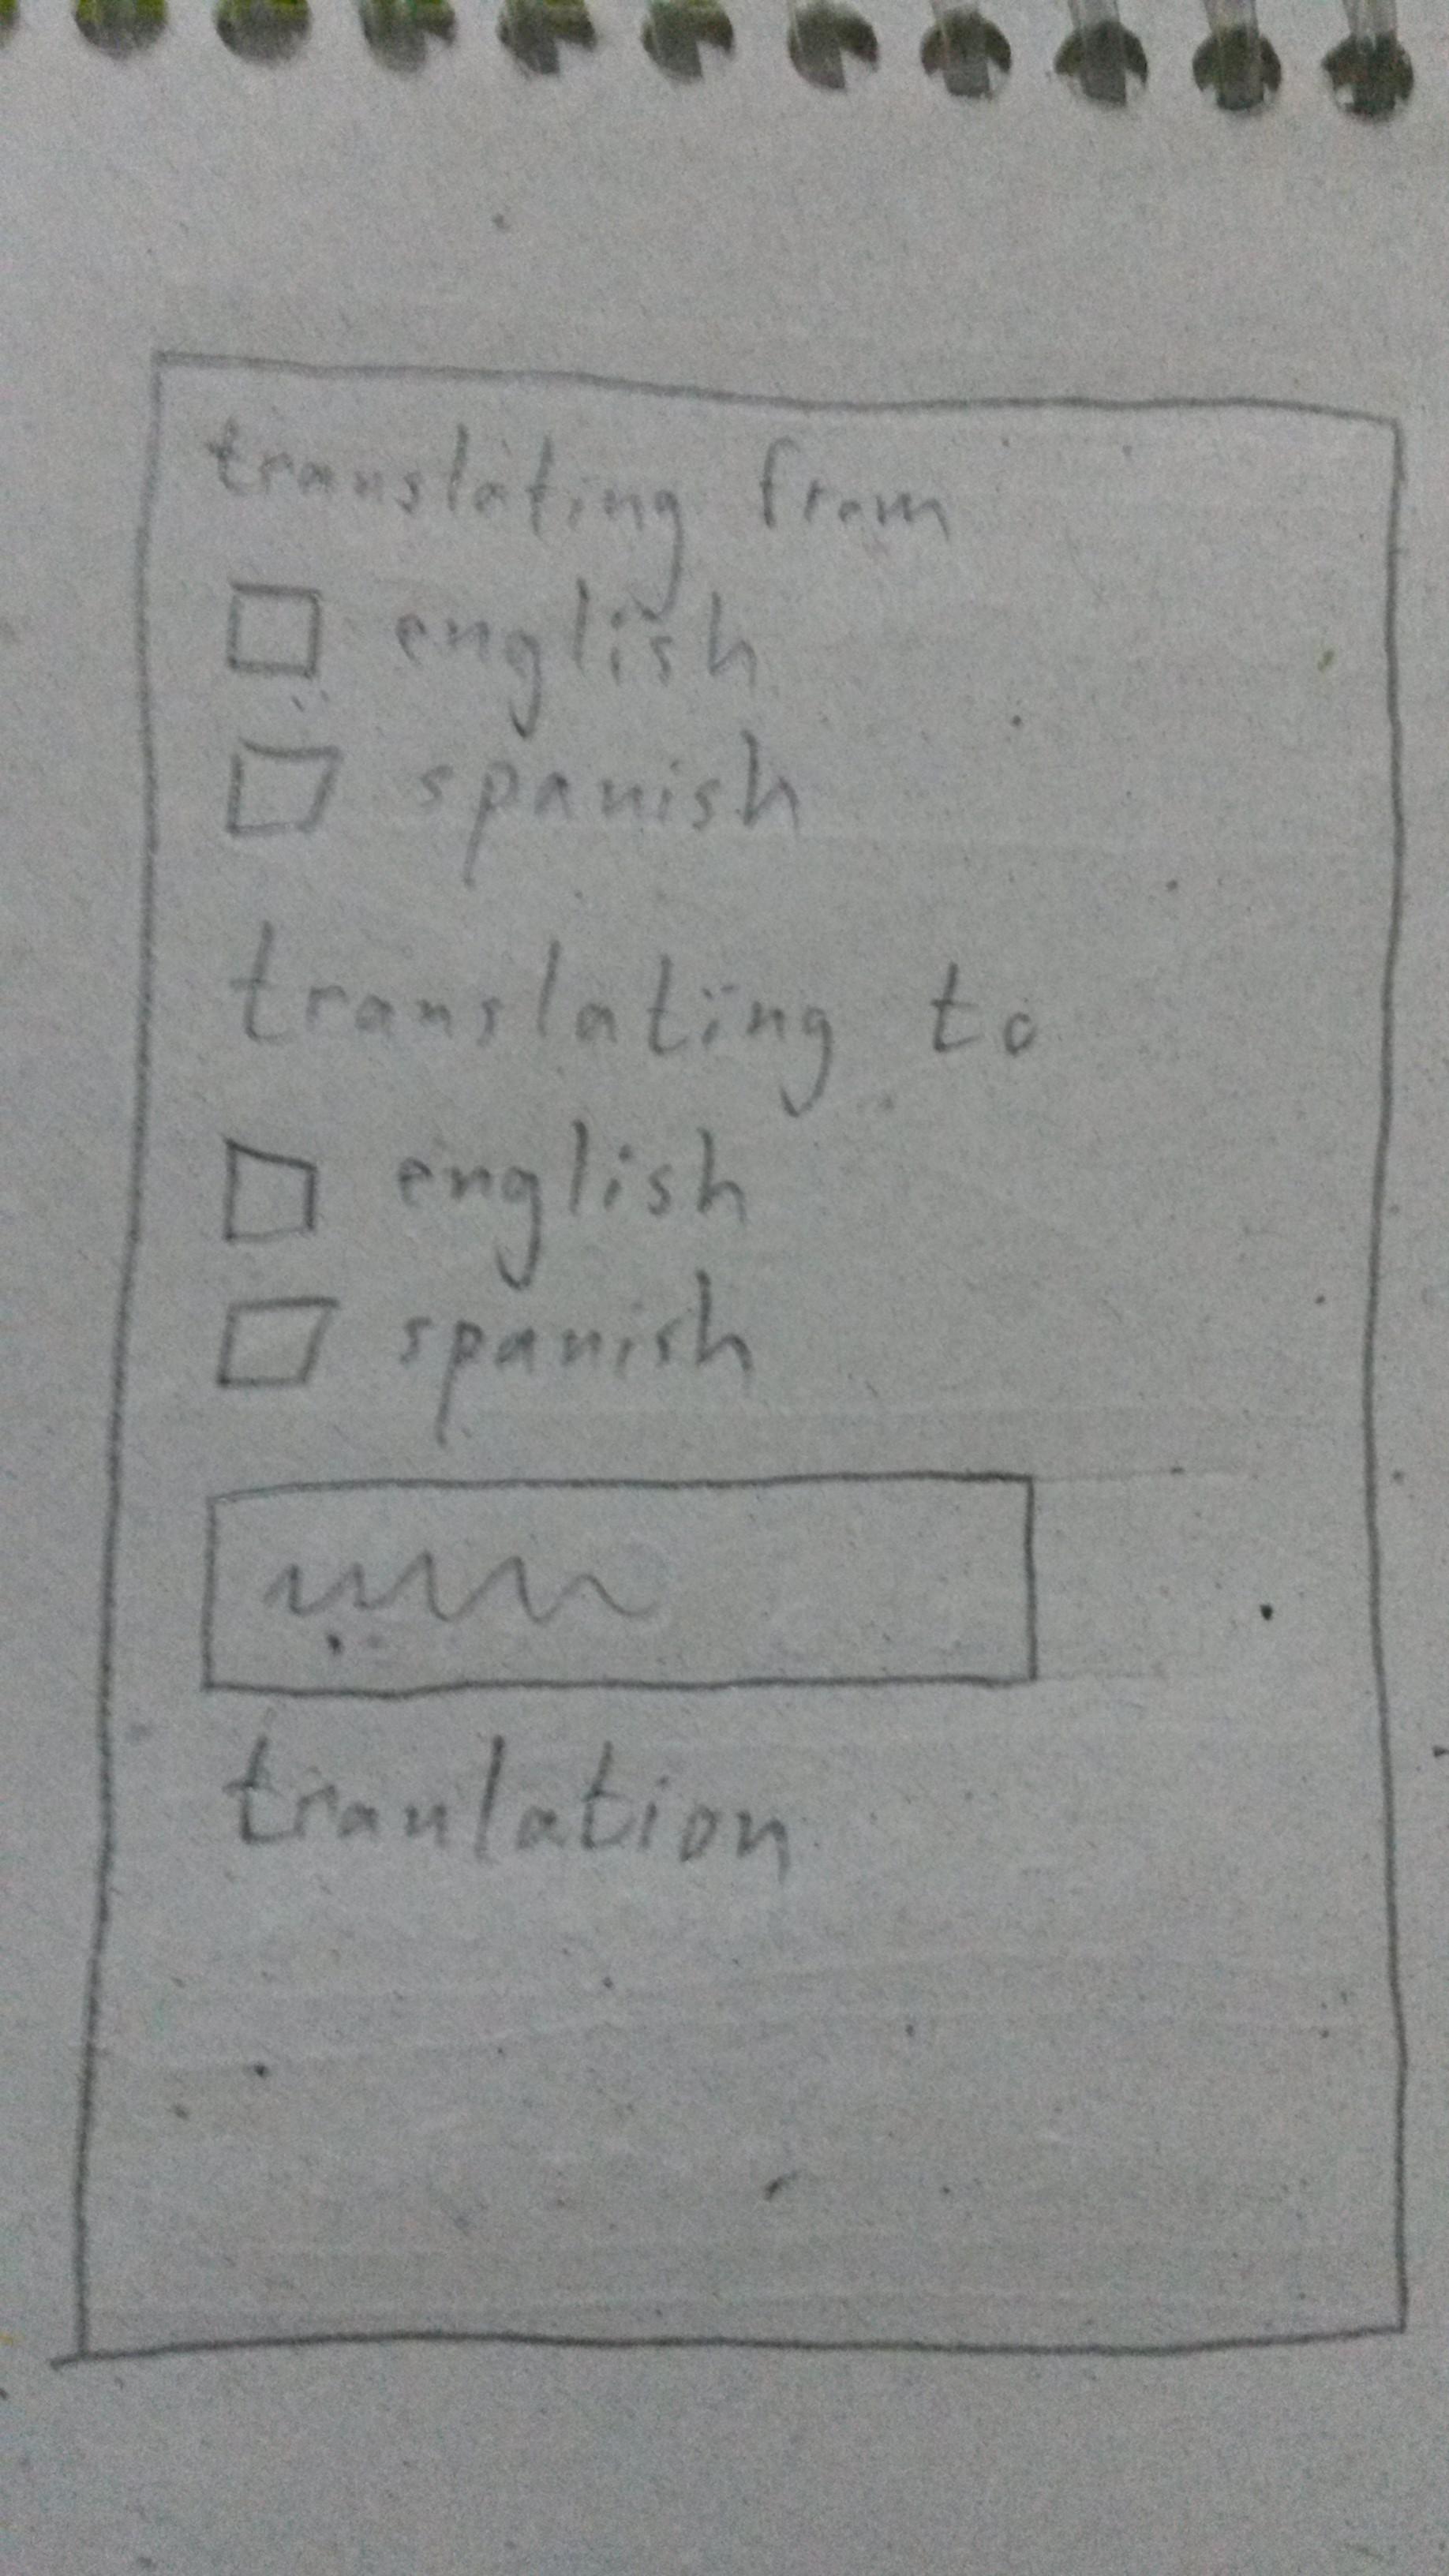 translating from
english
spanish
translating to
english
spanish
tranlation